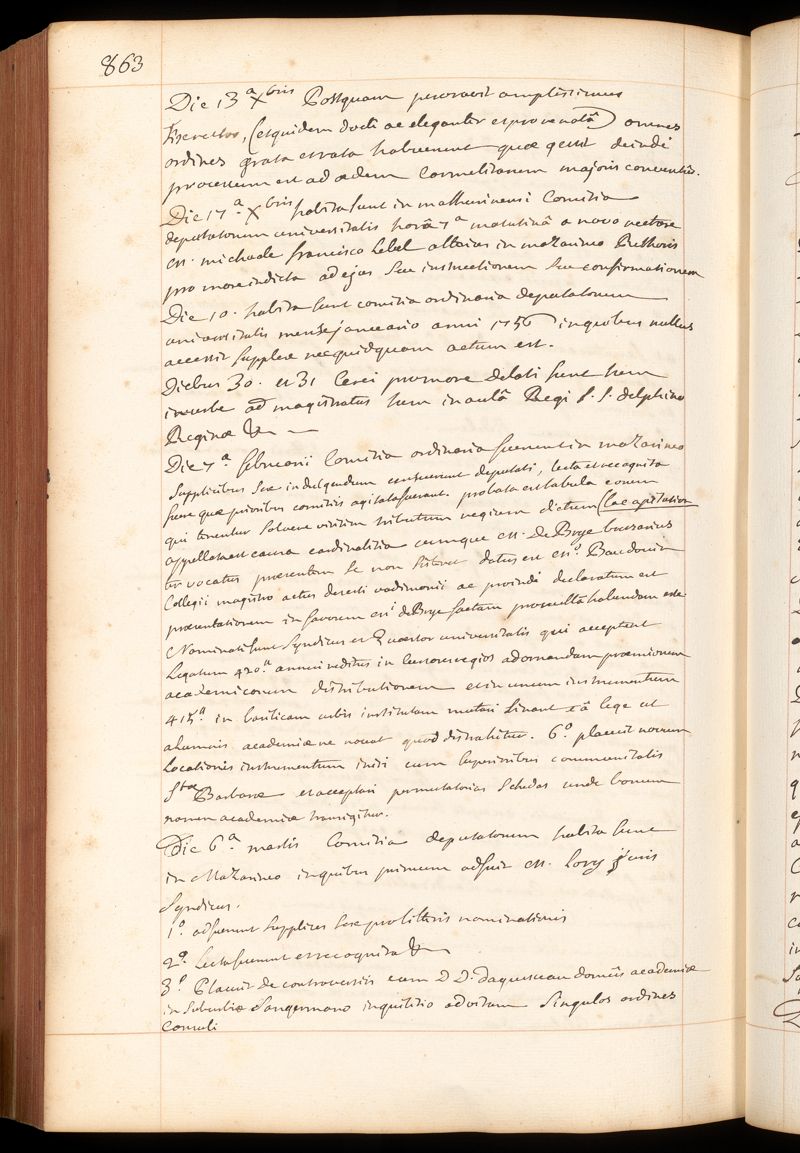 863
Die 13.a Xbris Postquam peroravit amplissimus
Exrector, (et quidem docte ac eleganter et pro re nata) omnes
ordines grata et rata habuerunt quæ gessit deinde
processum est ad ædem Carmelitarum majoris conventus.
Die 17.a Xbris habita sunt in mathurinensi Comitia
deputatorum universitatis horâ 7a matutinâ a novo rectore
m. michaele francisco Lebel alterius in mazarineo Rethoris
pro more indicta ad ejus sive instructionem sive confirmationem
Die 10. habita sunt comitia ordinaria deputatorum
universitatis mense januario anni 1756 in quibus nullus
accessit supplex nec quidquam actum est.
Diebus 30. et 31 Cerei pro more delati sunt tum
in urbe ad magistratus tum in aulâ Regi S. S. delphino
Reginæ &c —
Die 7.a februarii Comitia ordinaria fuerunt in mazarineo
supplicibus suæ indulgendum censuerunt deputati, lecta et recognita
sunt quæ prioribus comitiis agitata fuerant. probata est tabula eorum
qui tenentur solvere viritim tributum regium dictum (la capitation
appellata est causa cardinalitia cumque m. De Broye bursarius
ter vocatus præsentem se non sisteret datus est m.o Baudouin
Collegii magistro actus deserti vadimonii ac proinde declaratum est
præsentationem in favorem m.i de Broye factam pro nulla habendam esse
Nominati sunt Syndicus et Quæstor universitatis qui acceptent
Legatum 420.a annui reditus in census regios ad ornandam præmiorum
academicorum distributionem et in unum instrumentum
415.a in basilicam urbis institutam mutari sinant eâ lege ut
alumnis academiæ ne noceat quod distrahitur. 6.o placuit novum
Locationis instrumentum iniri cum superioribus communitatis
Stæ Barbaræ et acceptari permutatorias schedas unde bonum
nomen academiæ transigitur.
Die 6.a martis Comitia deputatorum habita sunt
in Mazarineo in quibus primum adfuit m. Lory juris
Syndicus.
1.o adfuerunt supplices sex pro litteris nominationis
2.o Lecta fuerunt et recognita &c —
3.o Placuit de controversiis cum D D. daguesseau domûs academiæ
in suburbio Sangermano inquilino ad vitam singulos ordines
Consuli